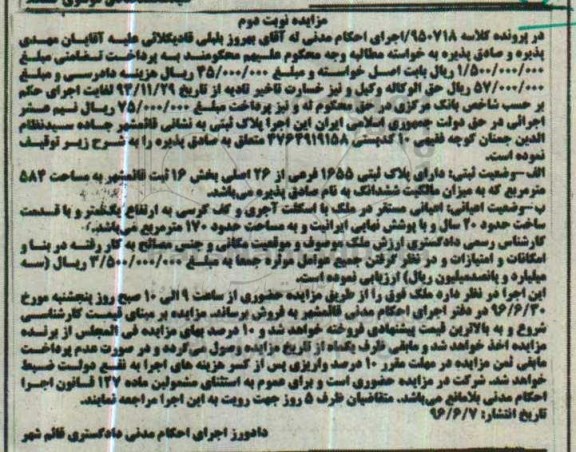 مزایده نوبت دوم
در پرونده کلاسه ۹۵۰۷۱۸/اجرای احکام مدنی له آقای بهروز بلبلی قادیکلائی علیه آقایان مهدی
پذیره و صادق پذیره به خواسته مطالبه وجه محکوم علیهم محکومند به پرداخت تضامنی مبلغ
۱/۵۰۰/۰۰۰/۰۰۰ ریال بابت اصل خواسته و مبلغ ۴۵/۰۰۰/۰۰۰ ریال هزینه دادرسی و مبلغ
۵۷/۰۰۰/۰۰۰ ریال حق الوکاله وکیل و نیز خسارت تاخیر تادیه از تاریخ ۹۳/۱۱/۲۹ لغایت اجرای حکم
بر حسب شاخص بانک مرکزی در حق محکوم له و نیز پرداخت مبلغ ۷۵/۰۰۰/۰۰۰ ریال نیم عشر
اجرائی در حق دولت جمهوری اسلامی ایران این اجرا پلاک ثبتی به نشانی قائمشهر جاده سیدنظام
الدین چمنان کوچه فقیمی ۱۰ کدپستی ۴۷۶۴۹۱۹۱۵۸ متعلق به صادق پذیره را به شرح زیر توقیف
نموده است.
الف-وضعیت ثبتی: دارای پلاک ثبتی ۱۶۵۵ فرعی از ۲۶ اصلی بخش ۱۶ ثبت قائمشهر به مساحت ۵۸۴
مترمربع که به میزان مالکیت ششدانگ به نام صادق پذیره می‌باشد.
ب-وضعیت اعیانی: اعیانی مستقر در ملک با اسکلت آجری و کف کرسی به ارتفاع یکمتر و با قدمت
ساخت حدود ۲۰ سال و با پوشش نهایی ایرانیت و به مساحت حدود ۱۷۰ مترمربع می‌باشد.
کارشناس رسمی دادگستری ارزش ملک موصوف و موقعیت مکانی و جنس مصالح به کار رفته در بنا و
امکانات و امتیازات و در نظر گرفتن جمیع عوامل موثره جمعا به مبلغ ۳/۵۰۰/۰۰۰/۰۰۰ ریال (سه
میلیارد و پانصدمیلیون ریال) ارزیابی نموده است.
این اجرا در نظر دارد ملک فوق را از طریق مزایده حضوری از ساعت ۹ الی ۱۰ صبح روز پنجشنبه مورخ
۹۶/۶/۳۰ در دفتر اجرای احکام مدنی قائمشهر به فروش برساند. مزایده بر مبنای قیمت کارشناسی
شروع و به بالاترین قیمت پیشنهادی فروخته خواهد شد و ۱۰ درصد بهای مزایده فی المجلس از برنده
مزایده اخذ خواهد شد و مابقی ظرف یکماه از تاریخ مزایده وصول می‌گردد و در صورت عدم پرداخت
مابقی ثمن مزایده در مهلت مقرر ۱۰ درصد واریزی پس از کسر هزینه های اجرا به نفع دولت ضبط
خواهد شد. شرکت در مزایده حضوری است و برای عموم به استثنای مشمولین ماده ۱۲۷ قانون اجرا
احکام مدنی بلامانع می‌باشد. متقاضیان ظرف ۵ روز جهت رویت به این اجرا مراجعه نمایند.
تاریخ انتشار: ۹۶/۶/۷
دادورز اجرای احکام مدنی دادگستری قائم شهر